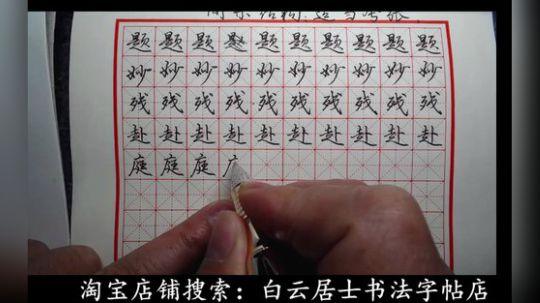 题题题题题题题题题题
妙妙妙妙妙妙妙妙妙妙
残残残残残残残残残残
赴赴赴赴赴赴赴赴赴赴
庭庭庭
淘宝店铺搜索：白云居士书法字帖店